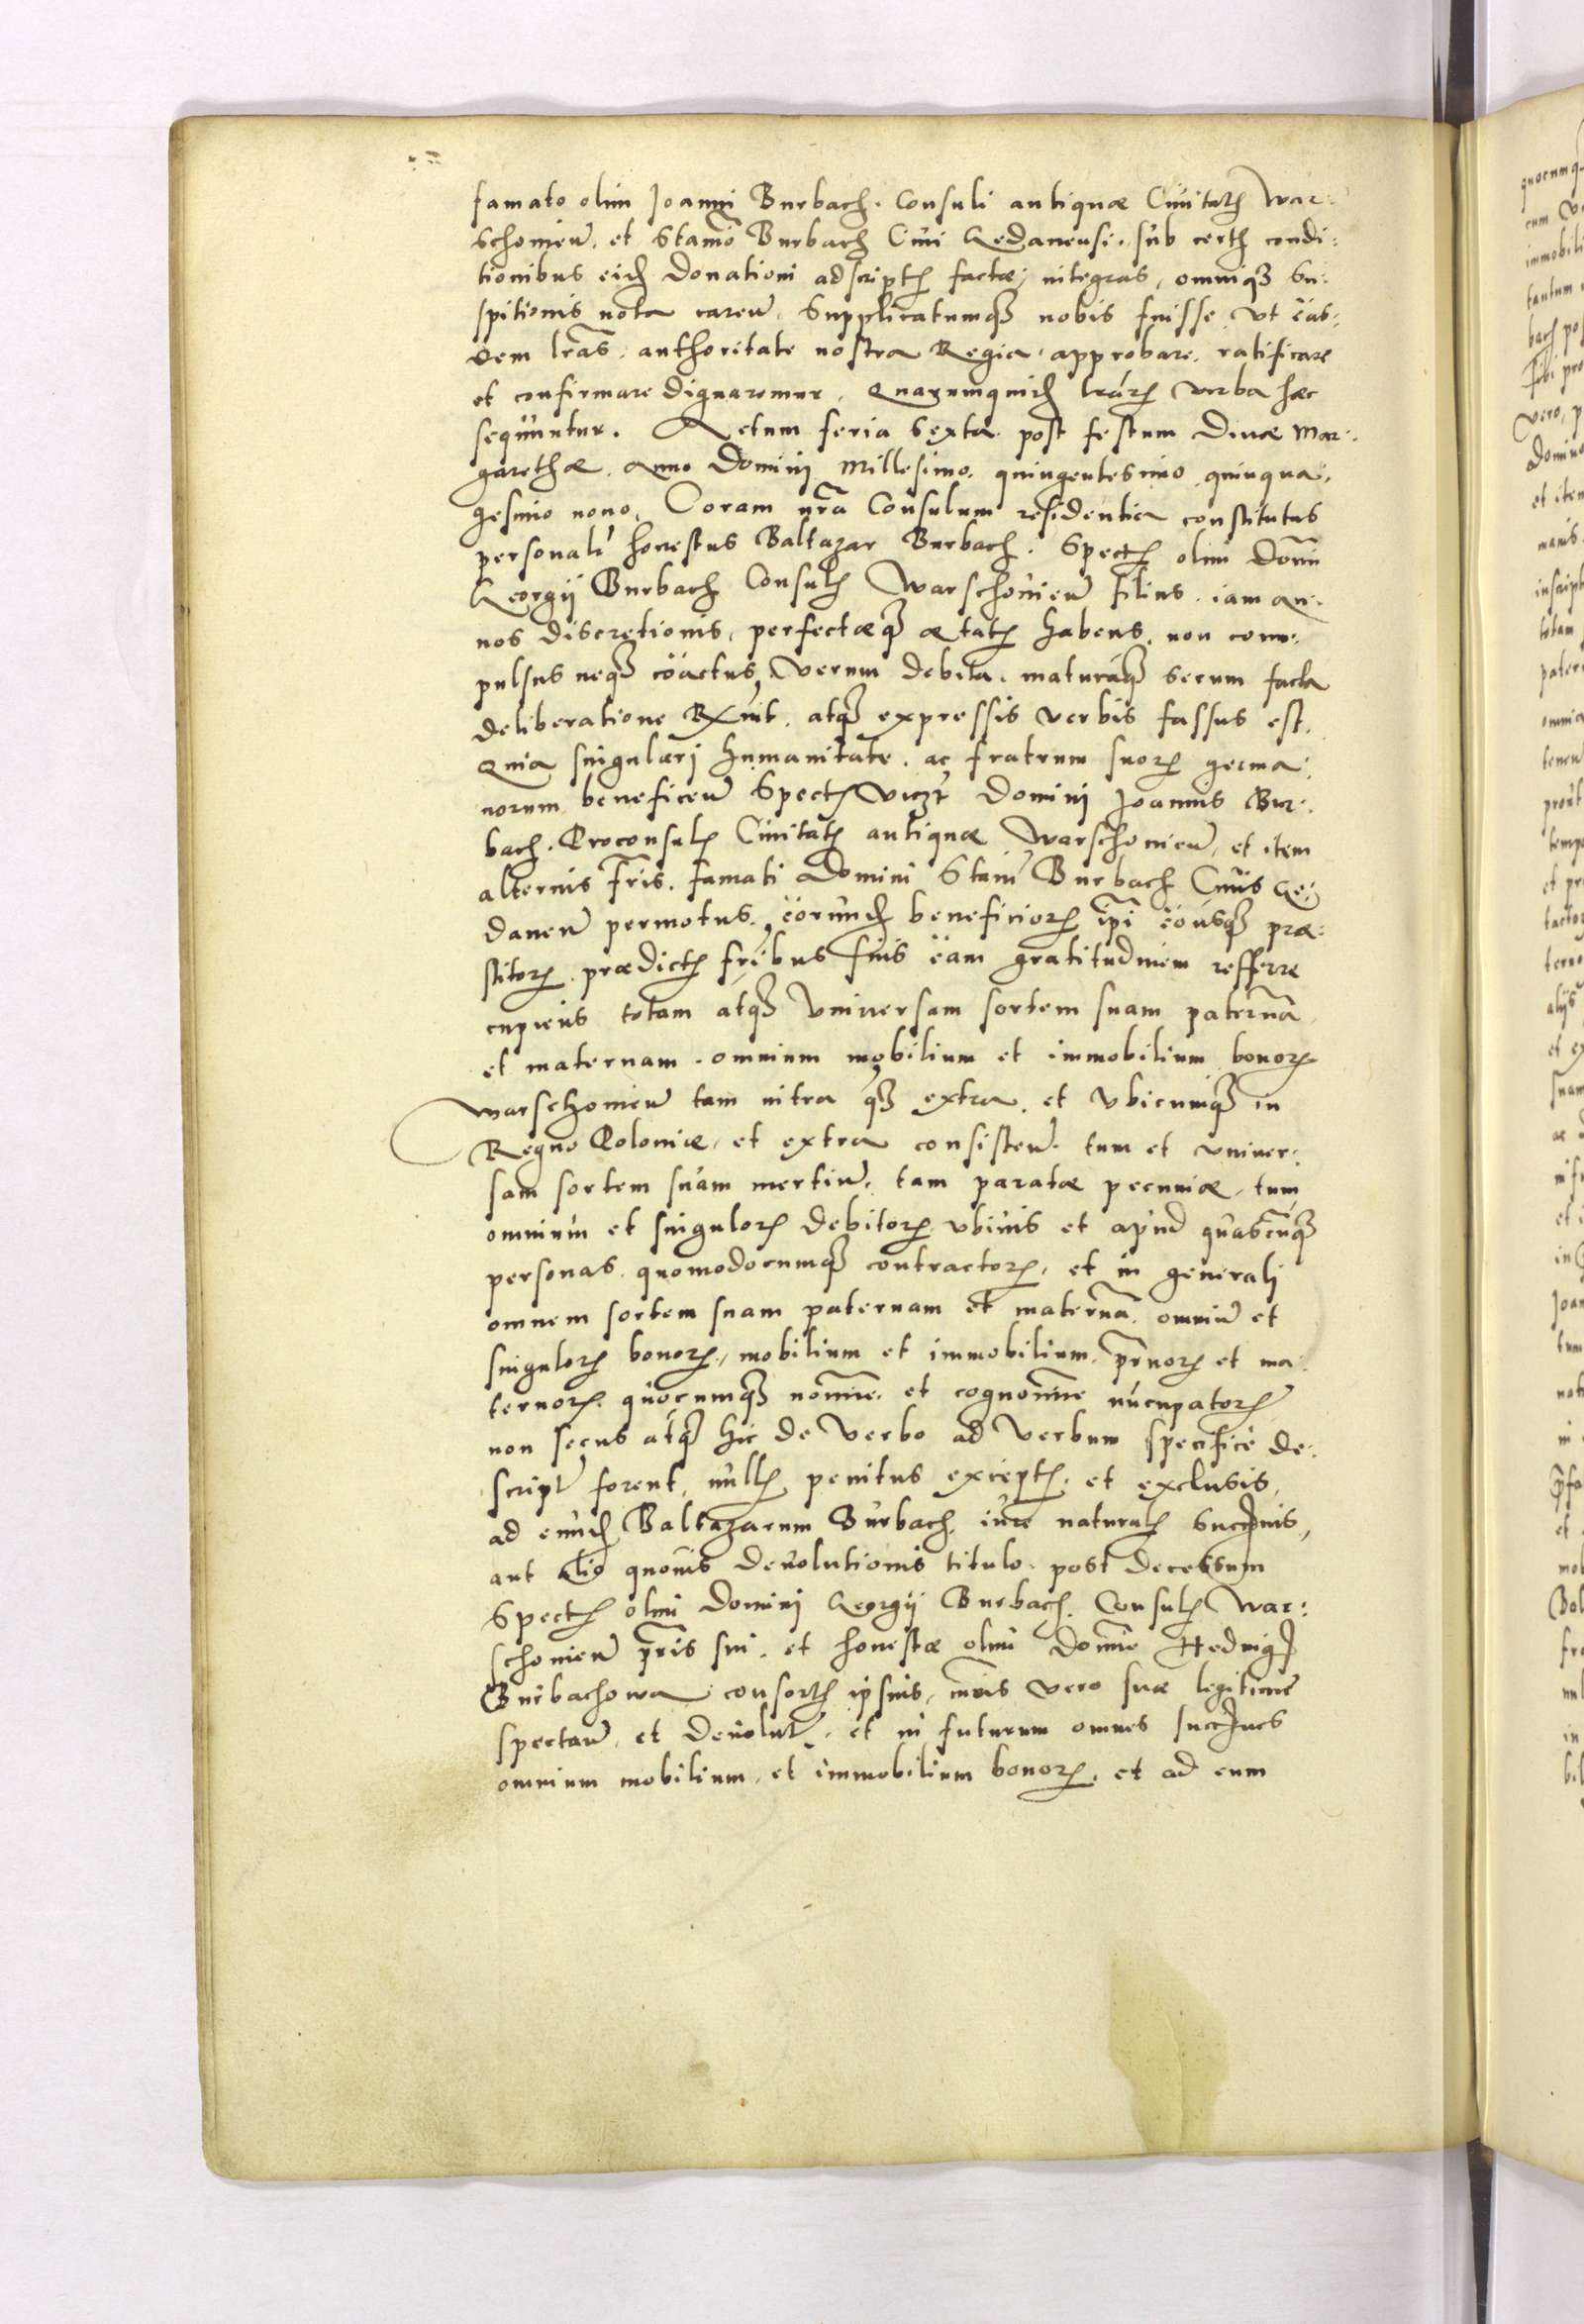 famato olim Joanni Burbach. Consuli antiquæ Ciuitatꝭ War:
schouieñ. et Stanō Burbach Ciui Gedanensi. sub certꝭ condi:
tionibus eidꝫ donationi adscriptꝭ factæ, integras, omniqꝫ Su:
spitionis nota careñ. Supplicatumqꝫ nobis fuisse, vt eäs:
dem lrãs. authoritate nostra Regia. approbare. ratificare
et confirmare dignaremur. Quarumquidꝫ lrãrꝭ verba hæc
sequuntur. Actum feria sexta post festum Diuæ Mar:
garethæ. Anno Dominj Millesimo. quingentesimo quinqua:
gesimo nono. Coram nr̃a Consulum residentia constitutus
personalr̃ honestus Baltazar Burbach. Spectꝭ olim Domĩ
Georgij Burbach Consulꝭ Warschouieñ filius. iam an:
nos discretionis, perfectæqꝫ ætatꝭ habens. non com:
pulsus neqꝫ coäctus, verum debita. maturaqꝫ secum facta
deliberatione Rxuit. atqꝫ expressis verbis fassus est.
Quia singularj humanitate. ac fratrum suorꝭ germa:
norum beneficeñ Spectꝭ viczꝫ Dominj Joannis Bur:
bach. Proconsulꝭ Ciuitatꝭ antiquæ Warschouieñ, et item
alterius fr̃is. famati Domini Stanĩ Burbach Ciuis Ge:
daneñ permotus. eörundꝫ beneficiorꝭ ip̃i eöusqꝫ præ:
stitorꝭ. prædictꝭ fr̃ibus suis eäm gratitudinem refferre
cupiens totam atqꝫ Vniuersam sortem suam paternã
et maternam. omnium mobilium et immobilium bonorꝭ
Warschouieñ tam intra qꝫ extra. et vbicumqꝫ in
Regno Poloniæ, et extra consisteñ. tum et vniuer:
sam sortem suam mertiuñ. tam paratæ pecuniæ, tum
omnium et singulorꝭ debitorꝭ vbiuis et apud quascũqꝫ
personas. quomodocumqꝫ contractorꝭ, et in generalj
omnem sortem suam paternam et maternã. omniũ et
singulorꝭ bonorꝭ, mobilium et immobilium. pr̃norꝭ et ma:
ternorꝭ. quocumqꝫ nomĩne. et cognomĩne nũcupatorꝭ
non secus atqꝫ hic de verbo ad verbum specifice de:
script̃ forent, nullꝭ penitus exceptꝭ. et exclusis,
ad eundꝫ Baltazarum Burbach. iure naturalꝭ Succꝭnis,
aut alio quouis deuolutionis titulo. post decessum
Spectꝭ olim Dominj Georgij Burbach. Consulꝭ War:
schouieñ pr̃is sui. et honestæ olim Domĩe Hedwigꝭ
Burbachowa consortꝭ ipsius, mr̃is vero suæ legitime
spectañ. et deuolut̃. et in futurum omnes succꝭnes
omnium mobilium, et immobilium bonorꝭ. et ad eum